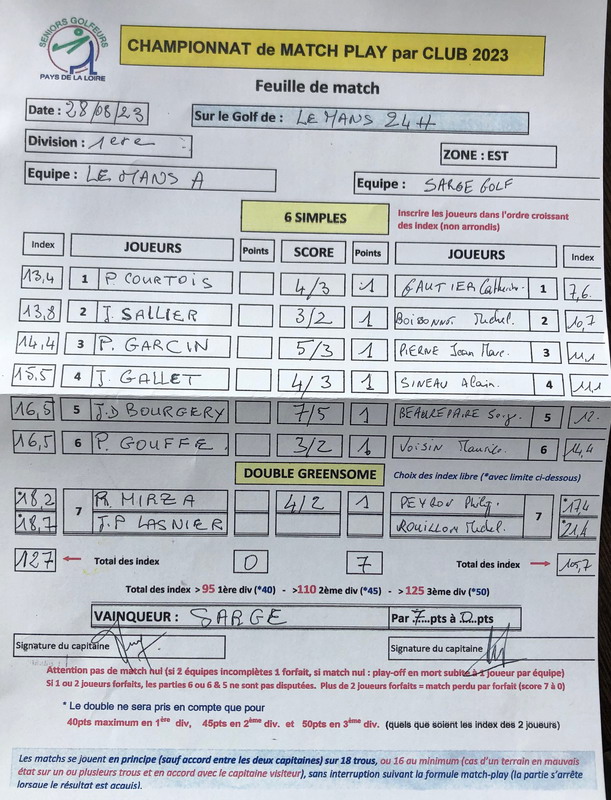 SENIORS GOLFEURS
PAYS DE LA LOIRE
CHAMPIONNAT de MATCH PLAY par CLUB 2023
Feuille de match
Date : 28/08/23 Sur le Golf de : LE MANS 24H
Division : 1ere
ZONE : EST
Equipe : LE MANS A Equipe : SARGE GOLF
6 SIMPLES Inscrire les joueurs dans l'ordre croissant
des index (non arrondis)
Index JOUEURS Points SCORE Points JOUEURS Index
13,4 1 P. COURTOIS 4/3 1 GAUTIER Catherine. 1 7,6
13,8 2 J. SALLIER 3/2 1 BOISBONNT Michel. 2 10,7
14,4 3 P. GARCIN 5/3 1 PIERNE Jean Marc. 3 11,1
15,5 4 J. GALLET 4/3 1 SINEAU Alain. 4 11,1
16,5 5 J.D BOURGERY 7/5 1 BEAUREPAIRE 5 12
16,5 6 P. GOUFFE. 3/2 1 VOISIN Maurice. 6 14,4
DOUBLE GREENSOME Choix des index libre (*avec limite ci-dessous)
18,2 7 R. MIRZA 4/2 1 PEYRON Philip. 7 *17,4
*18,7 J.P LASNIER ROUILLON Michel. *21,4
127 Total des index 0 7 Total des index 105,7
Total des index > 95 1ère div (*40) - >110 2ème div (*45) - > 125 3ème div (*50)
VAINQUEUR : SARGE Par 7...pts à 0..pts
Signature du capitaine Signature du capitaine
Attention pas de match nul (si 2 équipes incomplètes 1 forfait, si match nul : play-off en mort subite à 1 joueur par équipe)
Si 1 ou 2 joueurs forfaits, les parties 6 ou 6 & 5 ne sont pas disputées. Plus de 2 joueurs forfaits = match perdu par forfait (score 7 à 0)
* Le double ne sera pris en compte que pour
40pts maximum en 1ère div, 45pts en 2ème div. et 50pts en 3ème div. (quels que soient les index des 2 joueurs)
Les matchs se jouent en principe (sauf accord entre les deux capitaines) sur 18 trous, ou 16 au minimum (cas d'un terrain en mauvais
état sur un ou plusieurs trous et en accord avec le capitaine visiteur), sans interruption suivant la formule match-play (la partie s'arrête
lorsque le résultat est acquis).